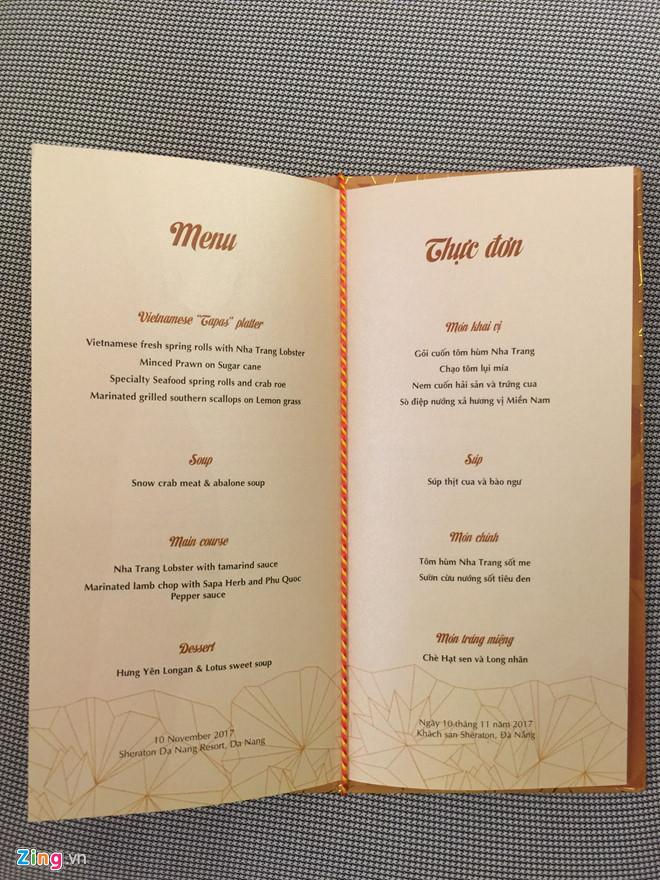 Menu
Vietnamese "Tapas" platter
Vietnamese fresh spring rolls with Nha Trang Lobster
Minced Prawn on Sugar cane
Specialty Seafood spring rolls and crab roe
Marinated grilled southern scallops on Lemon grass
Soup
Snow crab meat & abalone soup
Main course
Nha Trang Lobster with tamarind sauce
Marinated lamb chop with Sapa Herb and Phu Quoc
Pepper sauce
Dessert
Hưng Yên Longan & Lotus sweet soup
10 November 2017
Sheraton Da Nang Resort, Da Nang
Thực đơn
Món khai vị
Gỏi cuốn tôm hùm Nha Trang
Chạo tôm lụi mía
Nem cuốn hải sản và trứng cua
Sò điệp nướng xả hương vị Miền Nam
Súp
Súp thịt cua và bào ngư
Món chính
Tôm hùm Nha Trang sốt me
Sườn cừu nướng sốt tiêu đen
Món tráng miệng
Chè Hạt sen và Long nhãn
Ngày 10 tháng 11 năm 2017
Khách sạn Sheraton, Đà Nẵng
Zing.vn